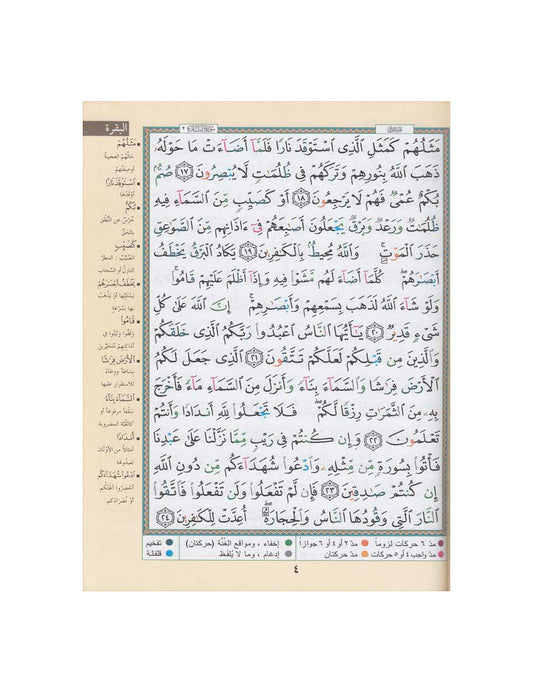 سورة البقرة ٢
البقرة
مَثَلُهُمْ كَمَثَلِ ٱلَّذِى ٱسْتَوْقَدَ نَارًا فَلَمَّآ أَضَآءَتْ مَا حَوْلَهُۥ
ذَهَبَ ٱللَّهُ بِنُورِهِمْ وَتَرَكَهُمْ فِى ظُلُمَٰتٍ لَّا يُبْصِرُونَ ١٧ صُمٌّۢ
بُكْمٌ عُمْىٌ فَهُمْ لَا يَرْجِعُونَ ١٨ أَوْ كَصَيِّبٍ مِّنَ ٱلسَّمَآءِ فِيهِ
ظُلُمَٰتٌ وَرَعْدٌ وَبَرْقٌ يَجْعَلُونَ أَصَٰبِعَهُمْ فِىٓ ءَاذَانِهِم مِّنَ ٱلصَّوَٰعِقِ
حَذَرَ ٱلْمَوْتِ ۚ وَٱللَّهُ مُحِيطٌۢ بِٱلْكَٰفِرِينَ ١٩ يَكَادُ ٱلْبَرْقُ يَخْطَفُ
أَبْصَٰرَهُمْ ۖ كُلَّمَآ أَضَآءَ لَهُم مَّشَوْا۟ فِيهِ وَإِذَآ أَظْلَمَ عَلَيْهِمْ قَامُوا۟ ۚ
وَلَوْ شَآءَ ٱللَّهُ لَذَهَبَ بِسَمْعِهِمْ وَأَبْصَٰرِهِمْ ۚ إِنَّ ٱللَّهَ عَلَىٰ كُلِّ
شَىْءٍ قَدِيرٌ ٢٠ يَٰٓأَيُّهَا ٱلنَّاسُ ٱعْبُدُوا۟ رَبَّكُمُ ٱلَّذِى خَلَقَكُمْ
وَٱلَّذِينَ مِن قَبْلِكُمْ لَعَلَّكُمْ تَتَّقُونَ ٢١ ٱلَّذِى جَعَلَ لَكُمُ
ٱلْأَرْضَ فِرَٰشًا وَٱلسَّمَآءَ بِنَآءً وَأَنزَلَ مِنَ ٱلسَّمَآءِ مَآءً فَأَخْرَجَ
بِهِۦ مِنَ ٱلثَّمَرَٰتِ رِزْقًا لَّكُمْ ۖ فَلَا تَجْعَلُوا۟ لِلَّهِ أَندَادًا وَأَنتُمْ
تَعْلَمُونَ ٢٢ وَإِن كُنتُمْ فِى رَيْبٍ مِّمَّا نَزَّلْنَا عَلَىٰ عَبْدِنَا
فَأْتُوا۟ بِسُورَةٍ مِّن مِّثْلِهِۦ وَٱدْعُوا۟ شُهَدَآءَكُم مِّن دُونِ ٱللَّهِ
إِن كُنتُمْ صَٰدِقِينَ ٢٣ فَإِن لَّمْ تَفْعَلُوا۟ وَلَن تَفْعَلُوا۟ فَٱتَّقُوا۟
ٱلنَّارَ ٱلَّتِى وَقُودُهَا ٱلنَّاسُ وَٱلْحِجَارَةُ ۖ أُعِدَّتْ لِلْكَٰفِرِينَ ٢٤
مَثَلُهُمْ
حالهم العجيبة
أو صفتهم
اسْتَوْقَدَ نَارًا
أوقدها
بُكْمٌ
خرس عن النطق
بالحق
كَصَيِّبٍ
الصيب : المطر
النازل أو السحاب
يَخْطَفُ أَبْصَارَهُمْ
يستلبها أو يذهب
بها بسرعة
قَامُوا
وقفوا وثبتوا في
أماكنهم متحيرين
الأَرْضَ فِرَاشًا
بساطا ووطاء
للاستقرار عليها
السَّمَاءَ بِنَاءً
سقفا مرفوعا أو
كالقبة المضروبة
أَنْدَادًا
أمثالا من الأوثان
تعبدونها
ادْعُوا شُهَدَاءَكُمْ
أحضروا آلهتكم
أو نصراءكم
مدّ ٦ حركات لزوماً مدّ ٢ أو ٤ أو ٦ جوازاً إخفاء ، ومواقع الغنّة (حركتان) تفخيم
مدّ واجب ٤ أو ٥ حركات مدّ حركتان إدغام ، وما لا يُلفظ قلقلة
٤